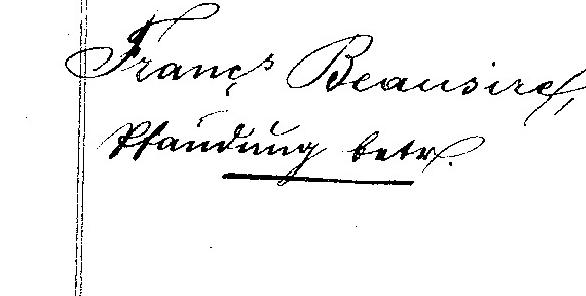 Franç⁠s Beausire,
Pfändung betr.